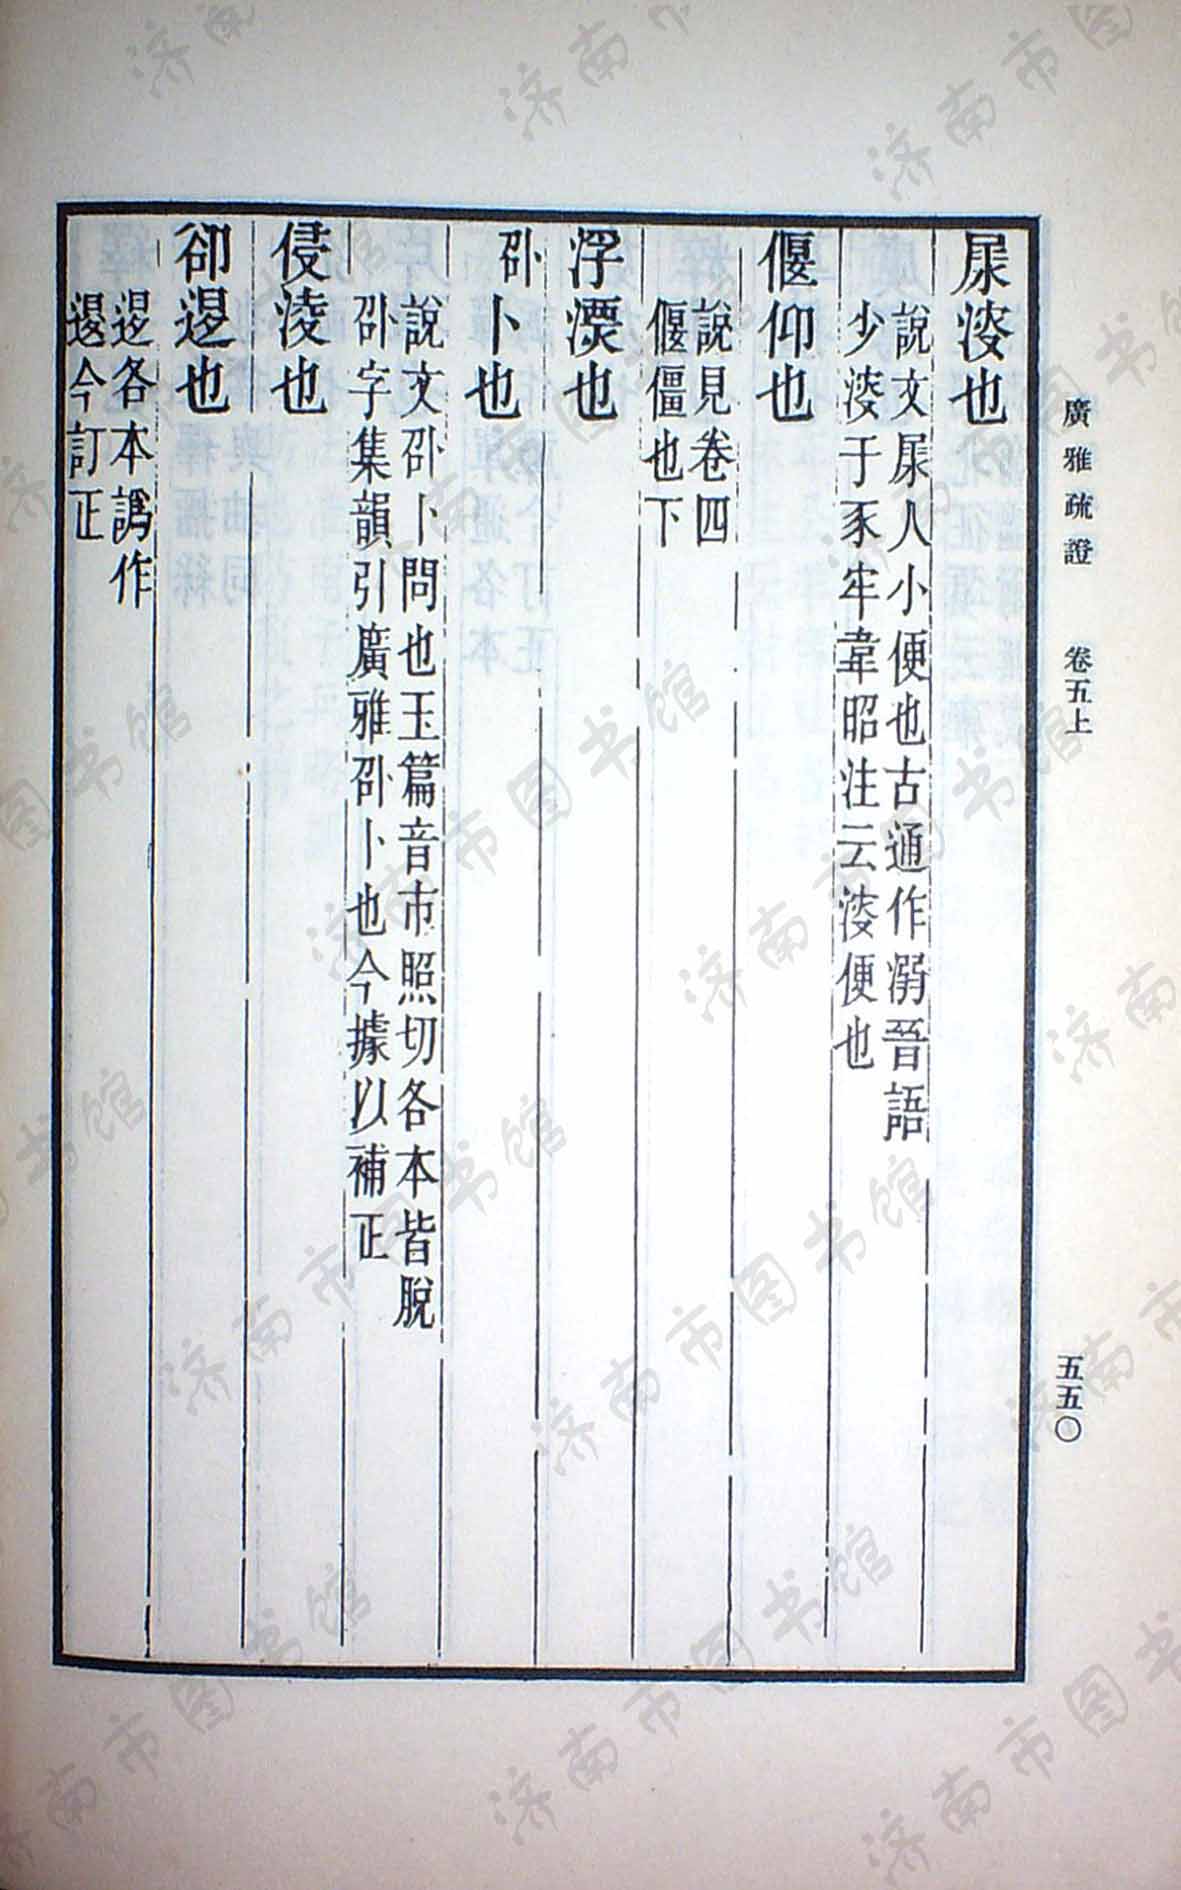 廣雅疏證　卷五上　五五〇
尿溲也
說文尿人小便也古通作溺晉語
少溲于豕牢韋昭注云溲便也
偃仰也
說見卷四
偃僵也下
浮漂也
𠧙卜也
說文𠧙卜問也玉篇音市照切各本皆脫
𠧙字集韻引廣雅𠧙卜也今據以補正
侵淩也
卻𨓤也
𨓤各本譌作
今訂正
济南市图书馆